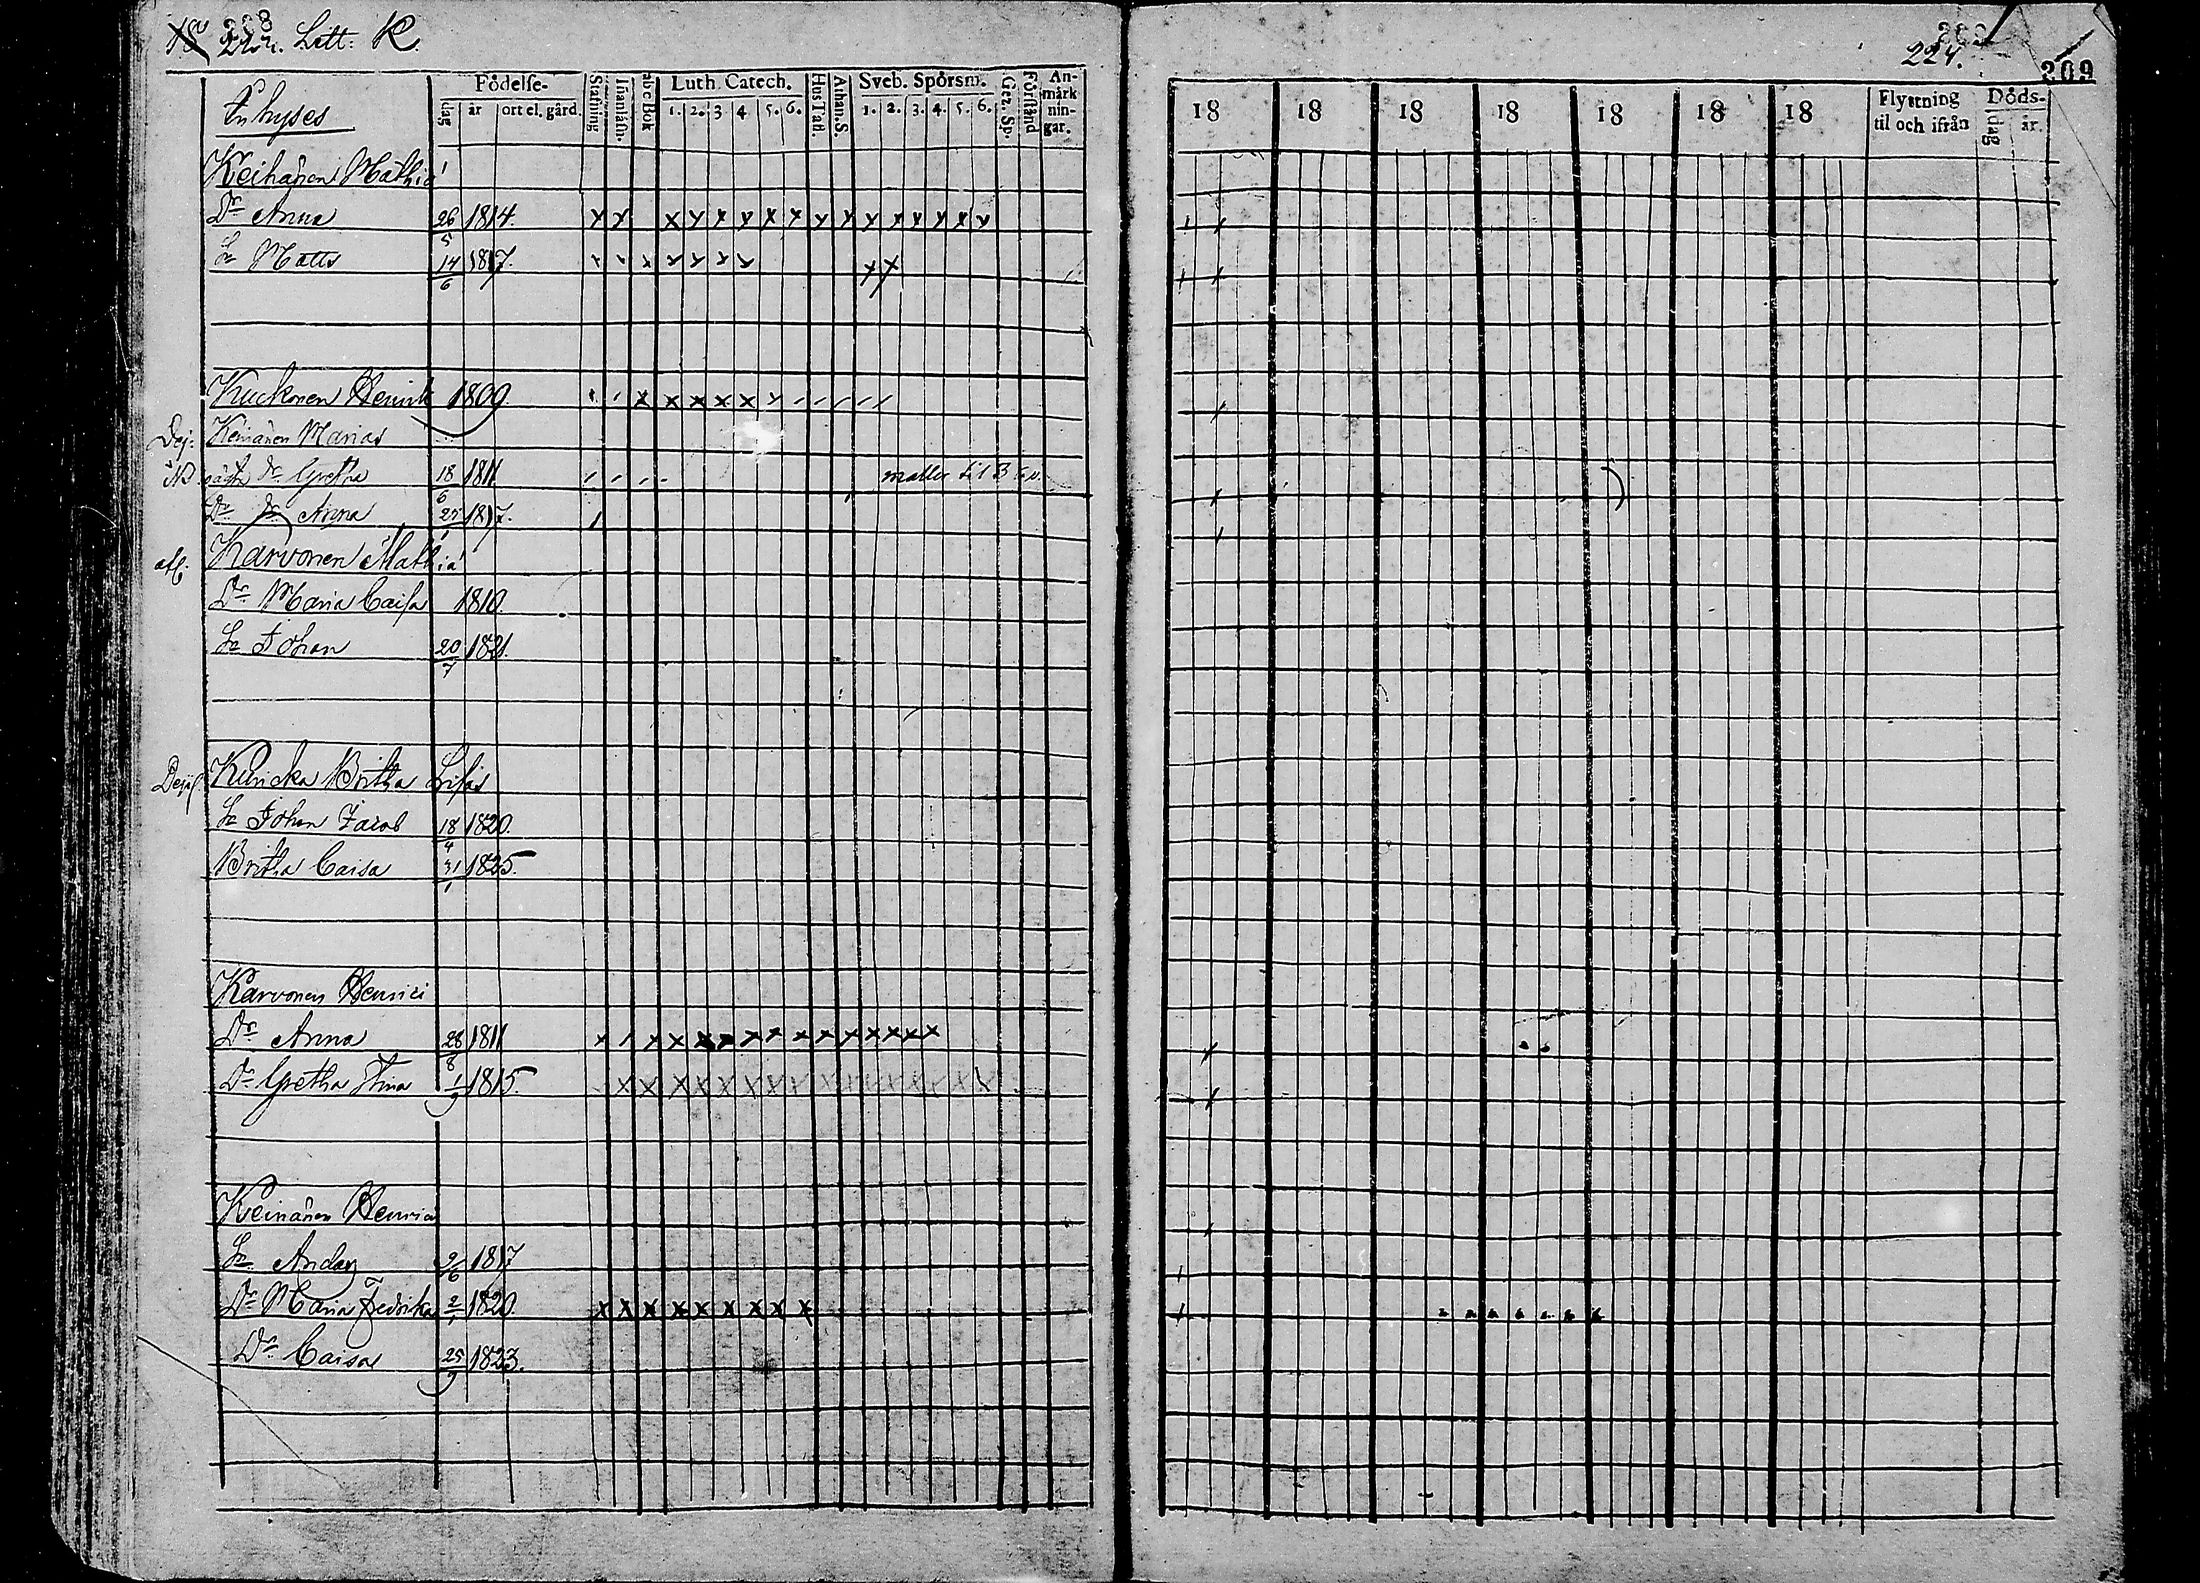 308
224. Litt: K.
Inhyses
Födelse-
dag
år
ort el. gård.
Stafning
Innanläsn.
abc Bok
Luth. Catech.
1. 2. 3 4 5. 6.
Hus Tafl.
Athan. S.
Sveb. Spörsm.
1. 2. 3. 4. 5. 6.
Gez. Sp.
Förstånd
An-
märk
nin-
gar.
Keihänen Mathia
Dr Anna 26/5 1814. x x x x x x x x x x x x x x x x
Sn Matts 14/6 1817. x x x x x x x x x
Kuckonen Henrik 1809. x x x x x x
Dej: Keinänen Maria
Dr Gretha 18/6 1811
Dr Anna 1817.
afl. Karvonen Mathia
Dr Maria Caisa 1810.
Sn Johan 20/7 1821.
Britha Lisa
Sn Johan Jacob 18/4 1820.
Britha Caisa 31/1 1825.
Karvonen Henrici
Dr Anna 28/8 1811 x x x x x x x x x x x x x x
Dr Gretha Stina 1/9 1815. x x x x x x x x x x x x x x x x
Keinänen Henric
Sn Anders 2/6 1817
Dr Maria Fredrika 2/1 1820. x x x x x x x x x
Dr Caisa 25/9 1823.
224.
309
18 18 18 18 18 18 18
Flyttning
til och ifrån
Döds-
dag
år.